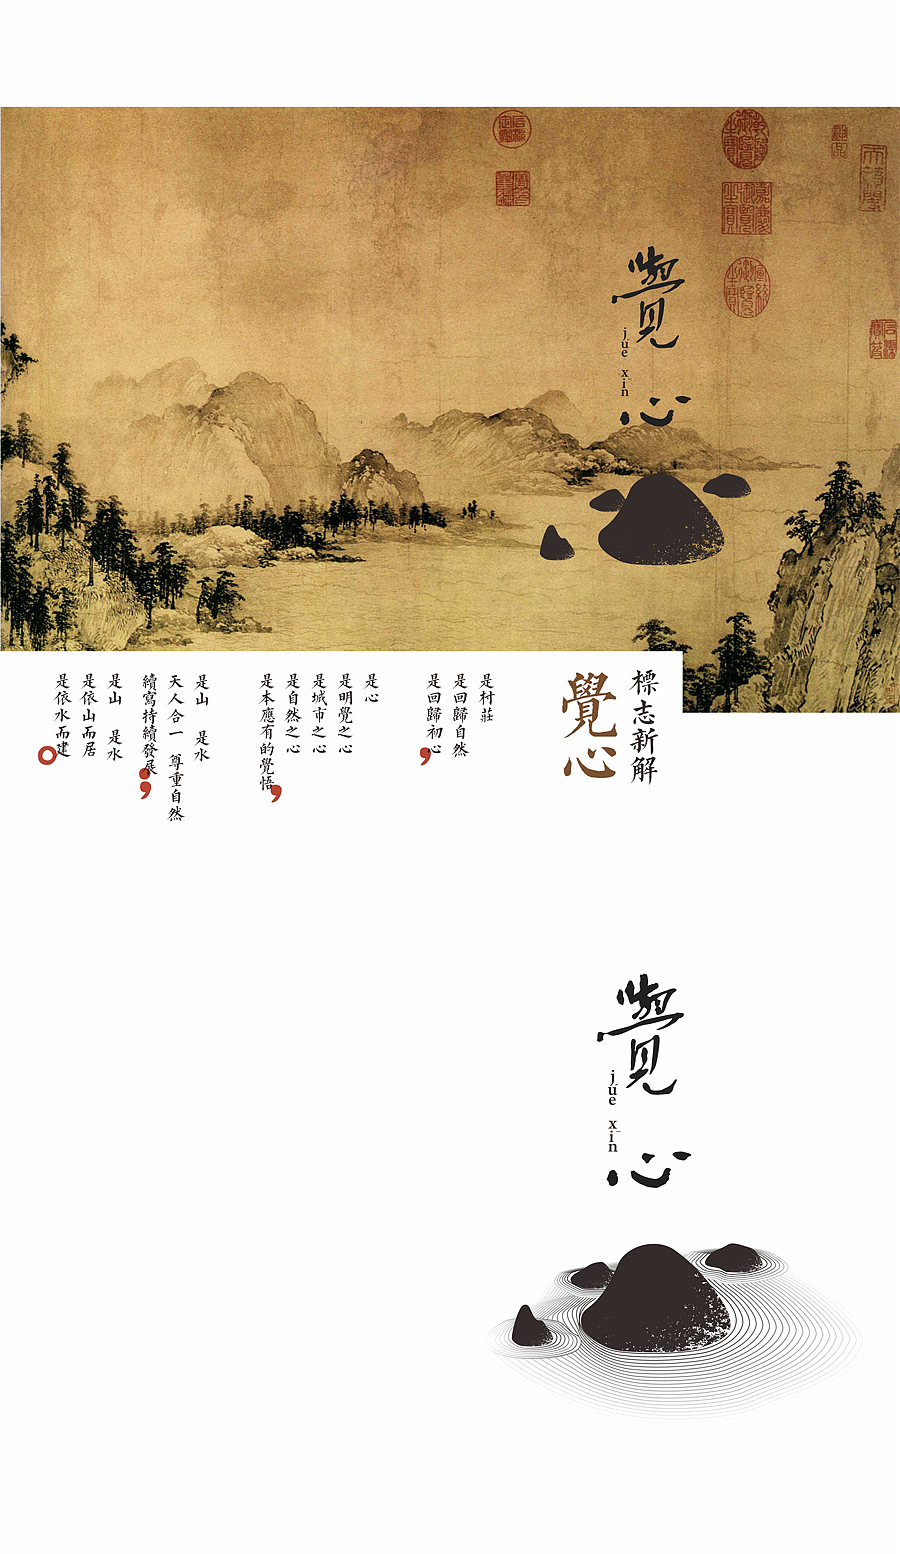 覺
jué
xīn
心
標志新解
覺心
是村莊
是回歸自然
是回歸初心，
是心
是明覺之心
是城市之心
是自然之心
是本應有的覺悟，
是山 是水
天人合一 尊重自然
續寫持續發展；
是山 是水
是依山而居
是依水而建。
覺
jué
xīn
心